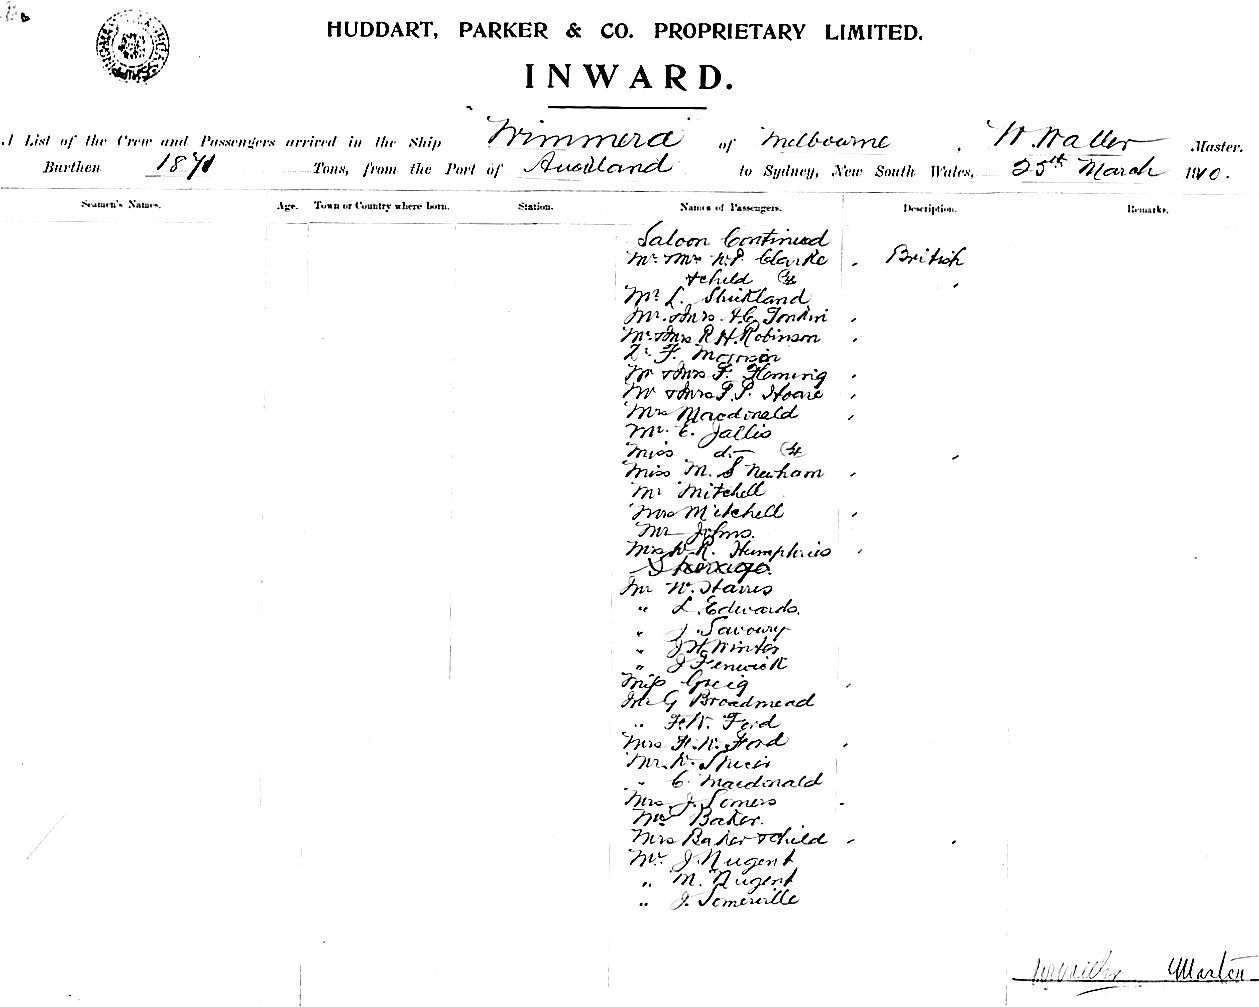 HUDDART, PARKER & CO. PROPRIETARY LIMITED.
INWARD.
A List of the Crew and Passengers arrived in the Ship Wimmera of Melbourne, W. Waller Master.
Burthen 1871 Tons, from the Port of Auckland to Sydney, New South Wales, 25th March
Seamen's Names. Age. Town or Country where born. Station. Names of Passengers. Description. Remarks.
Saloon Continued
Mr Mrs Clarke British
& child
Mr L. Strickland
Mr. & Mrs. Tonkin
Mr & Mrs R H Robinson
F. Morrison
Mr & Mrs F. Fleming
Mr & Mrs P. Hoare
Mrs Macdonald
Mr. E. Jallis
Miss do
Miss M. S Newham
Mr Mitchell
Mrs Mitchell
Mr Johns.
Mrs W. R. Humphries
Steerage.
Mr W. Harris
" L. Edwards.
" J. Savoury
" J W Winter
" J Fenwick
Miss Greig
Mr G Broadmead
" F. W. Ford
Mrs F. W. Ford
Mr. W. Speirs
" C. Macdonald
Mrs J. Somers
Mr Baker.
Mrs Baker & child
Mr. J. Nugent
" M. Nugent
" J. Somerville
W Waller Master